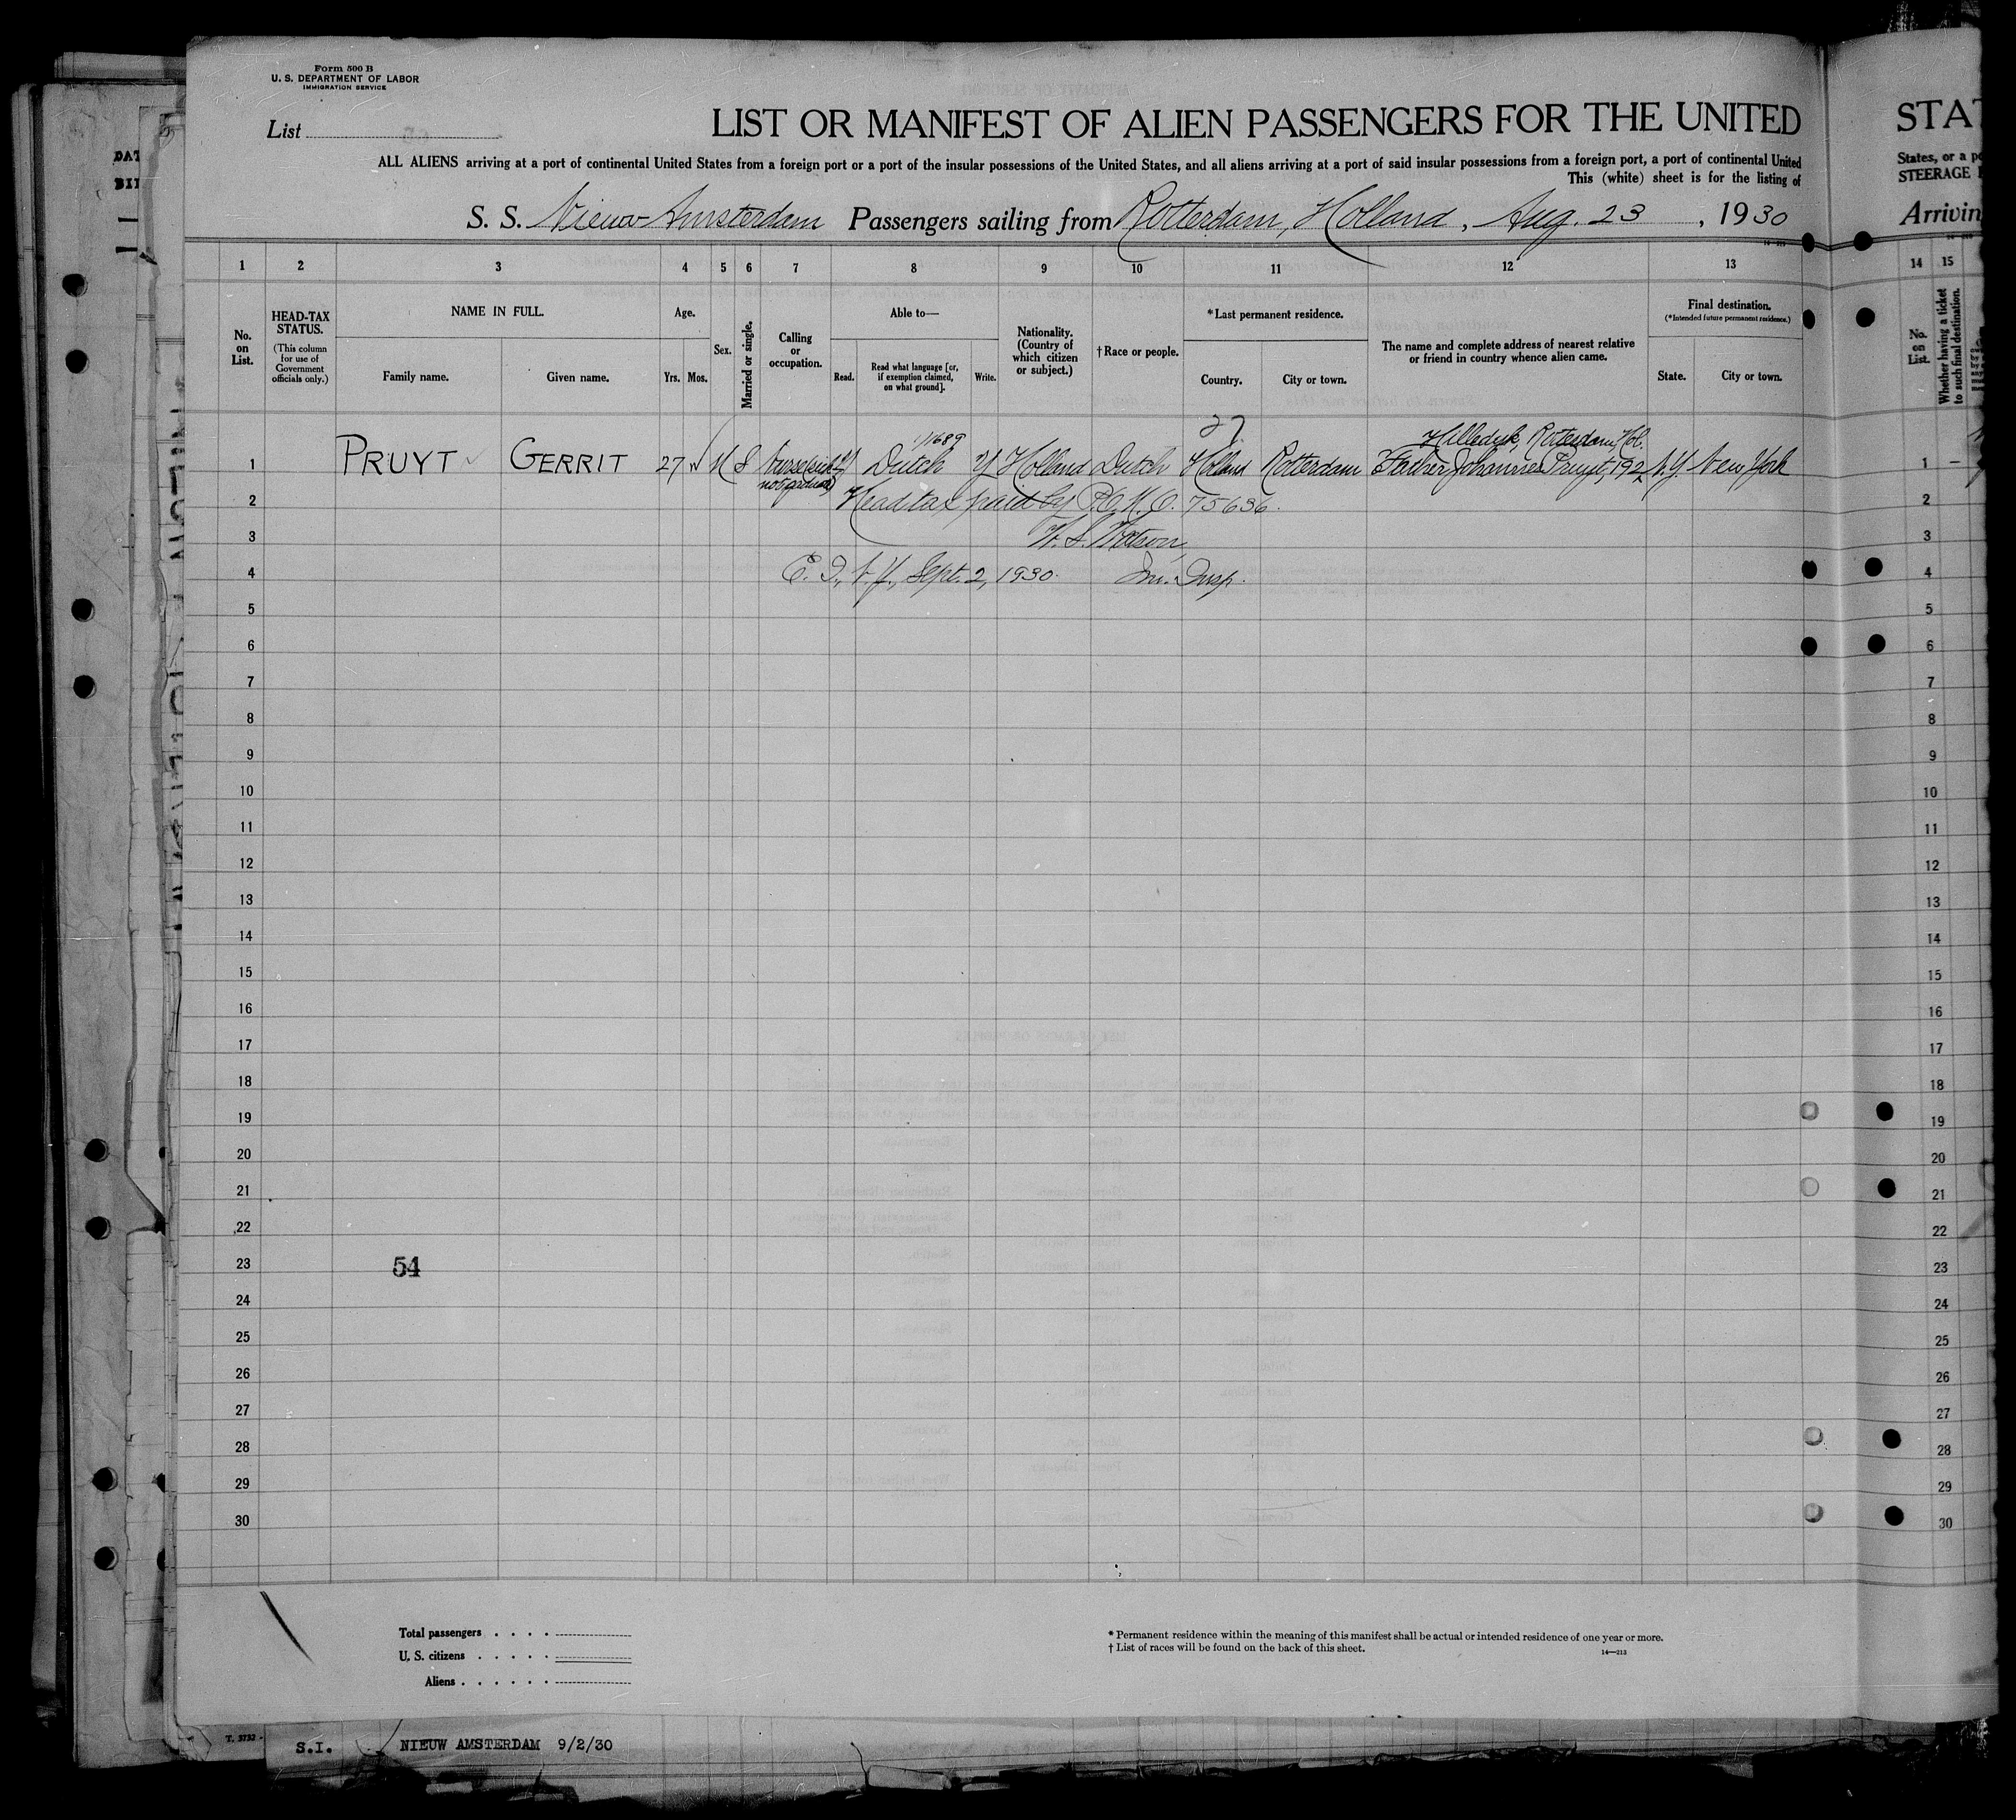 Form 500 B
U. S. DEPARTMENT OF LABOR
IMMIGRATION SERVICE
List
LIST OR MANIFEST OF ALIEN PASSENGERS FOR THE UNITED
STAT
ALL ALIENS arriving at a port of continental United States from a foreign port or a port of the insular possessions of the United States, and all aliens arriving at a port of said insular possessions from a foreign port, a port of continental United
States, or a po
This (white) sheet is for the listing of
STEERAGE
S. S. Nieuw Amsterdam Passengers sailing from Rotterdam, Holland, Aug. 23, 1930
Arrivin
14—213
1 2 3 4 5 6 7 8 9 10 11 12 13
14 15
No. on List.
HEAD-TAX STATUS. (This column for use of Government officials only.)
NAME IN FULL.
Family name.
Given name.
Age.
Yrs. Mos.
Sex.
Married or single.
Calling or occupation.
Able to—
Read.
Read what language [or, if exemption claimed, on what ground].
Write.
Nationality. (Country of which citizen or subject.)
†Race or people.
*Last permanent residence.
Country.
City or town.
The name and complete address of nearest relative or friend in country whence alien came.
Final destination.
(*Intended future permanent residence.)
State.
City or town.
No. on List.
Whether having a ticket to such final destination.
27
11689
Hilledyk, Rotterdam, Hol.
1 PRUYT GERRIT 27 M S Y Dutch Y Holland Dutch Holland Rotterdam Father Johannes Pruyt, 192 N.Y. New York
1 —
2 Head tax paid by P.O.M.O. 75636.
2
3 W. S. Watson,
3
4 E. I., N.Y., Sept. 2, 1930. Im. Insp.
4
5
5
6
6
7
7
8
8
9
9
10
10
11
11
12
12
13
13
14
14
15
15
16
16
17
17
18
18
19
19
20
20
21
21
22
22
23
54
23
24
24
25
25
26
26
27
27
28
28
29
29
30
30
Total passengers
U. S. citizens
Aliens
* Permanent residence within the meaning of this manifest shall be actual or intended residence of one year or more.
† List of races will be found on the back of this sheet.
14—213
S.I. NIEUW AMSTERDAM 9/2/30